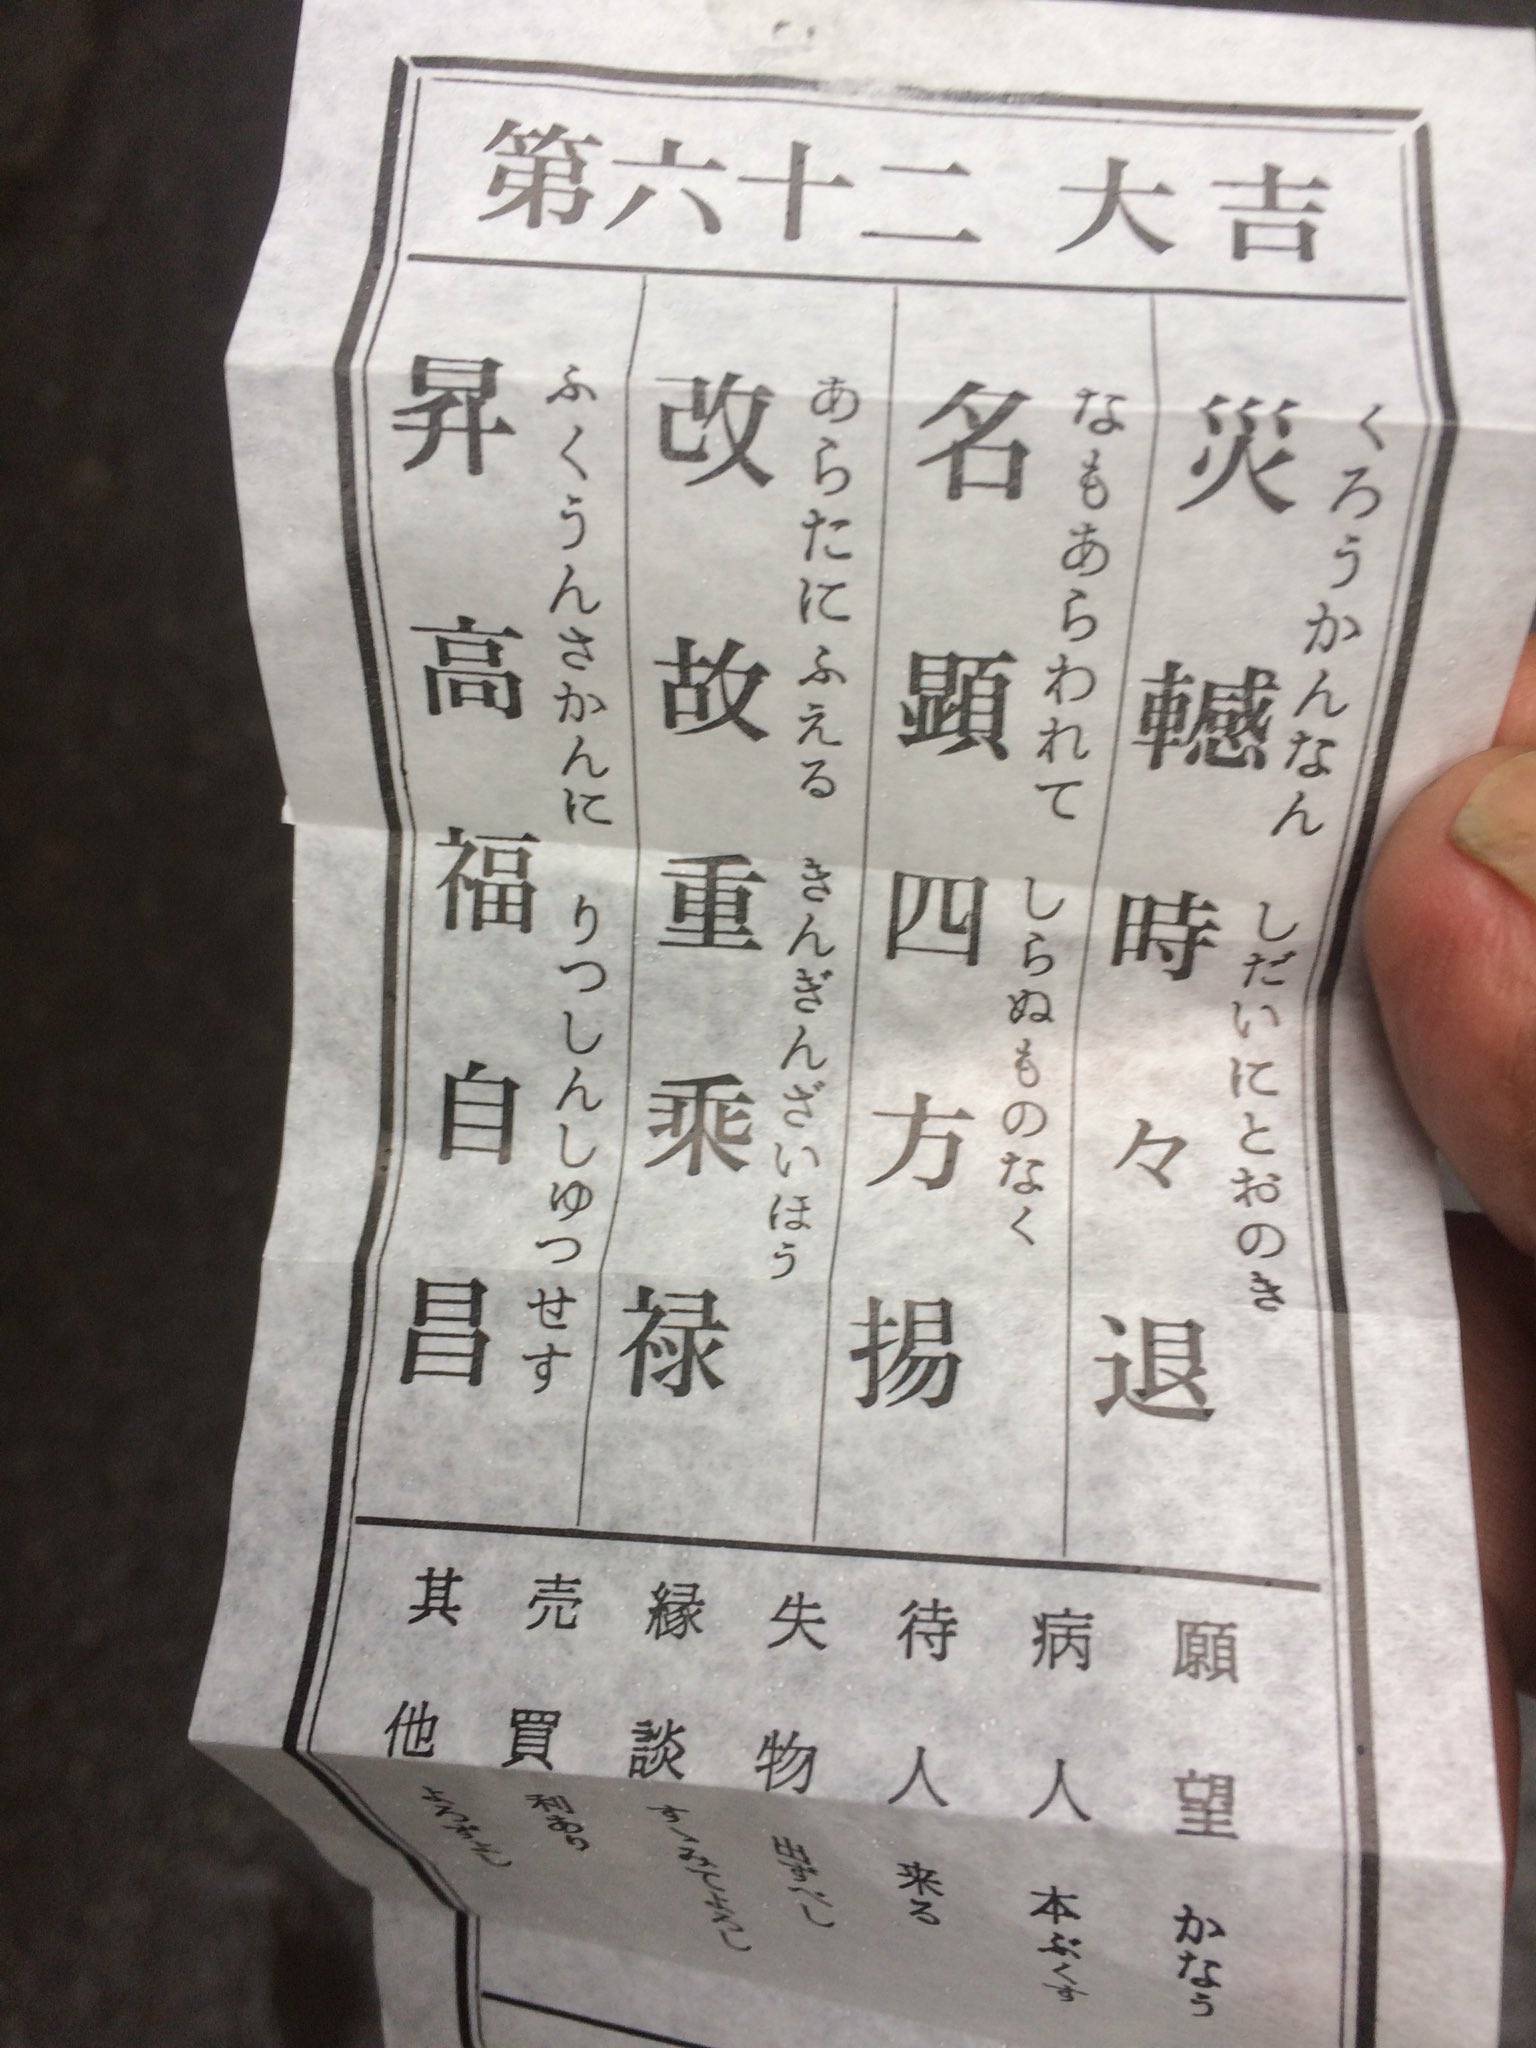 第六十二 大吉
くろうかんなん しだいにとおのき
災轗時々退
なもあらわれて しらぬものなく
名顕四方揚
あらたにふえる きんぎんざいほう
改故重乗禄
ふくうんさかんに りつしんしゆつせす
昇高福自昌
願望 かなう
病人 本ぶくす
待人 来る
失物
縁談
売買
其他